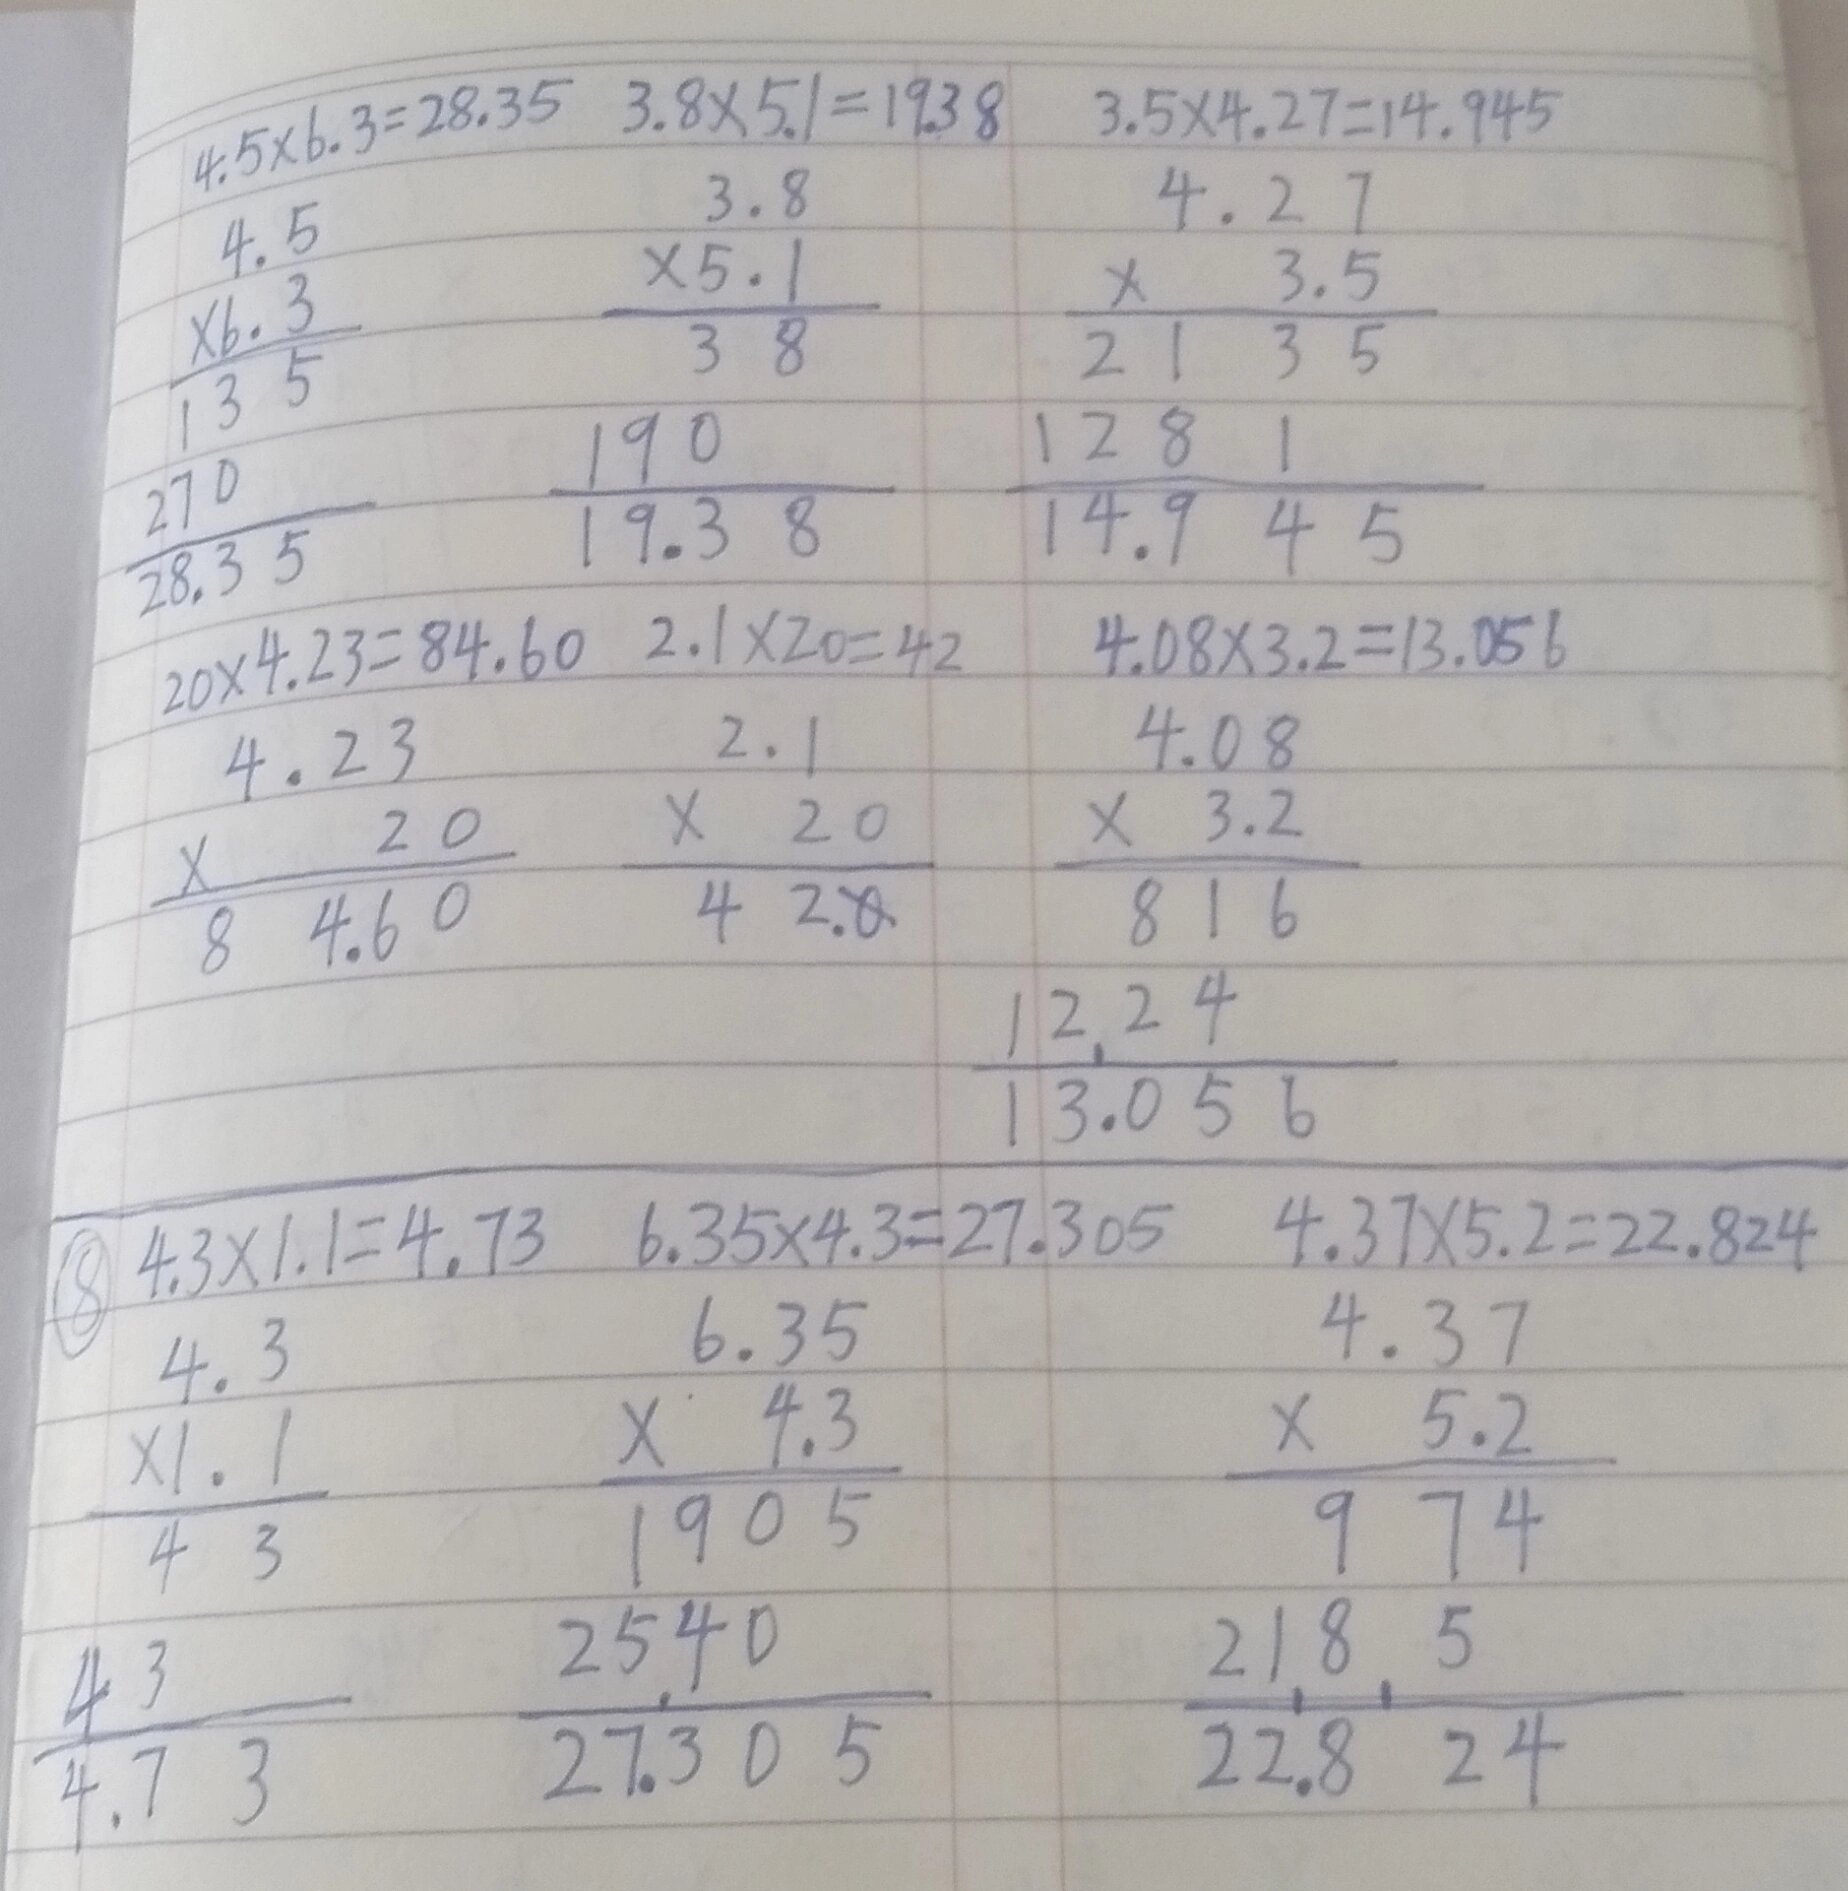 4.5×6.3=28.35 3.8×5.1=19.38 3.5×4.27=14.945
4.5 3.8 4.27
×6.3 ×5.1 × 3.5
135 38 2135
270 190 1281
28.35 19.38 14.945
20×4.23=84.60 2.1×20=42 4.08×3.2=13.056
4.23 2.1 4.08
× 20 × 20 × 3.2
84.60 42.0 816
12,24
13.056
⑧ 4.3×1.1=4.73 6.35×4.3=27.305 4.37×5.2=22.824
4.3 6.35 4.37
×1.1 × 4.3 × 5.2
43 1905 974
43 2540 2185
4.73 27.305 22.824